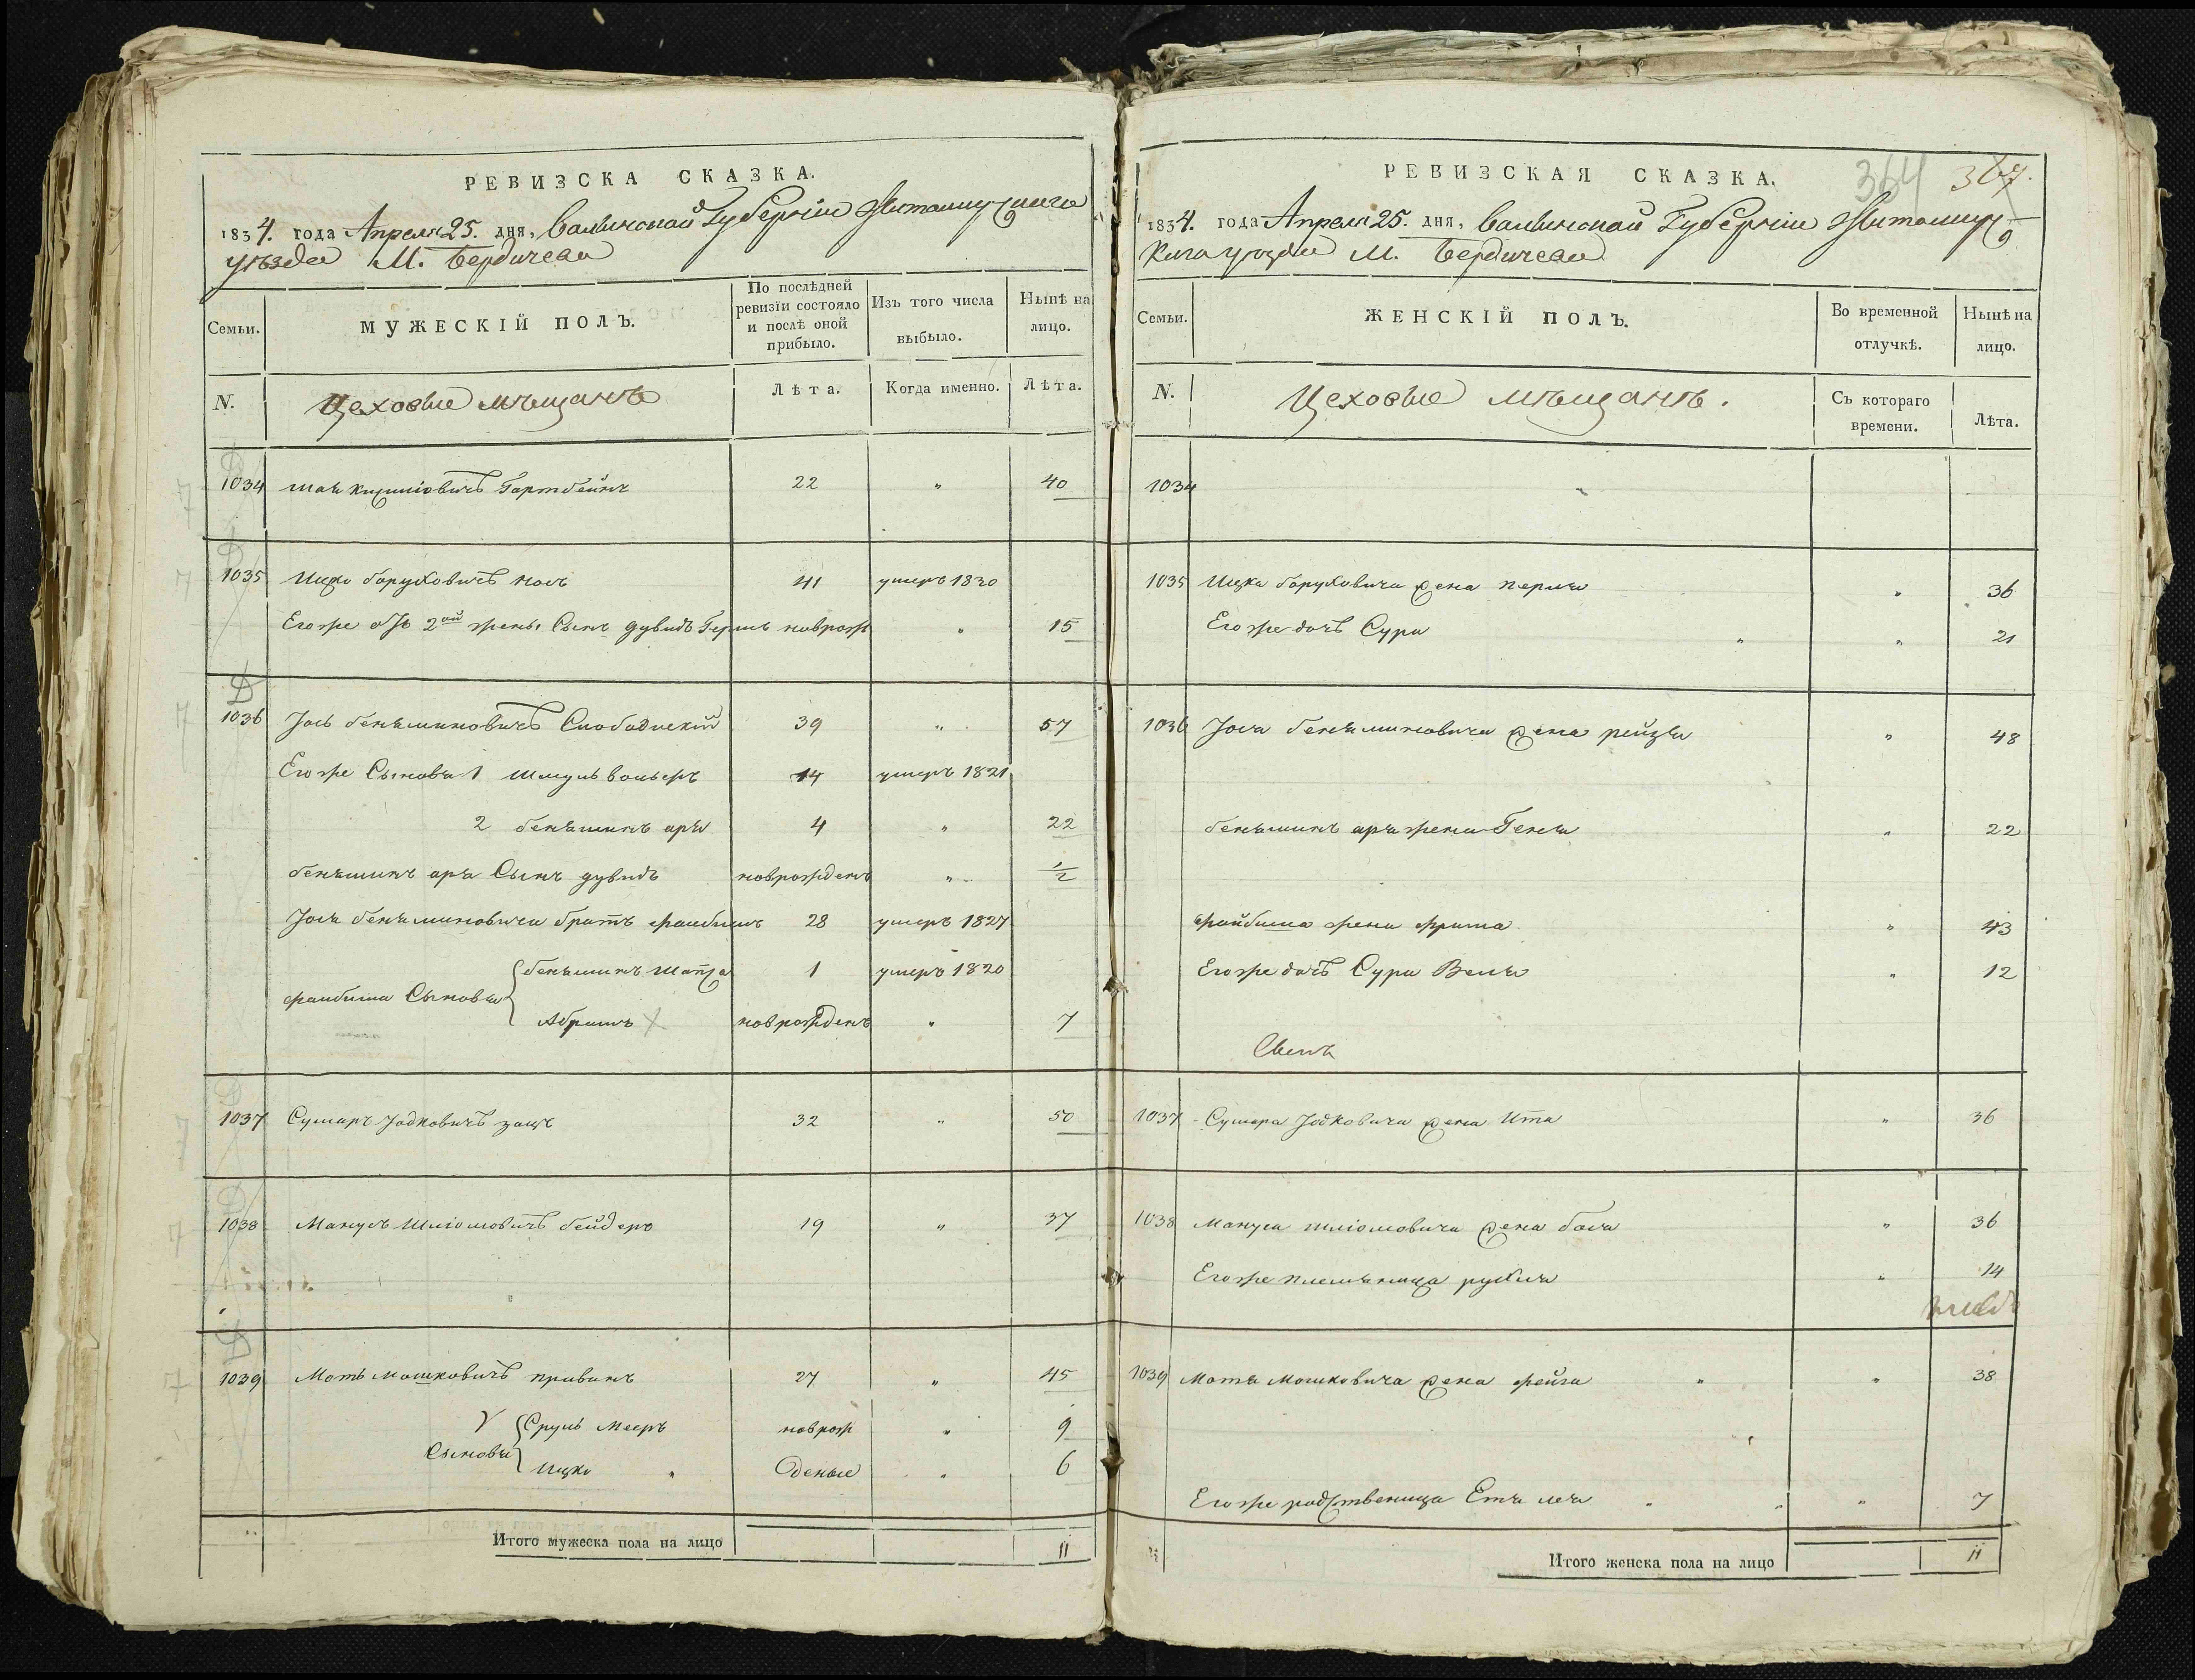 РЕВИЗСКА СКАЗКА.
1834. года Апреля 25. дня, Волынской Губернiи Житомирскаго
уѣзда М. Бердичева
Семьи.
МУЖЕСКIЙ ПОЛЪ.
По послѣдней
ревизiи состояло
и послѣ оной
прибыло.
Изъ того числа
выбыло.
Нынѣ на
лицо.
N.
Цеховые мѣщанѣ
Лѣта.
Когда именно.
Лѣта.
1034 Гортбейнъ 22 " 40
1035 Ицко Боруховичъ 41 умеръ 1820
Его же отъ 2ой жены Сынъ Дувидъ Гершъ новрож " 15
1036 Iось Беняминовичъ Слободискiй 39 " 57
Его же Сыновья 1 Шмуль Вольфъ 14 умеръ 1821
2 Беняминъ Арья 4 " 22
Беняминъ Арья Сынъ Дувидъ новрожденъ " 1/2
Iося Беняминовича братъ Файбишъ 28 умеръ 1827
Файбиша Сыновья Беняминъ 1 умеръ 1820
Абрамъ новрожденъ " 7
1037 Сумаръ Iодковичъ Зацъ 32 " 50
1038 Манусъ Шлiомовичъ Бейдеръ 19 " 37
1039 Мотъ Мошковичъ Привинъ 27 " 45
Сыновья Сруль Мееръ новрож " 9
Ицко " деные " 6
Итого мужеска пола на лицо 11
РЕВИЗСКАЯ СКАЗКА.
364 367.
1834. года Апреля 25. дня, Волынской Губернiи Житомирс
кага уѣзда М. Бердичева
Семьи.
ЖЕНСКIЙ ПОЛЪ.
Во временной
отлучкѣ.
Нынѣ на
лицо.
N.
Цеховые мѣщанѣ.
Съ котораго
времени.
Лѣта.
1034
1035 Ицка Боруховича жена Перля " 36
Его же дочь Сура " " 21
1036 Iося Беняминовича жена Рейзя " 48
Беняминъ Арья жена Геня " 22
Файбиша жена Фрима " 43
Его же дочь Сура Веля " 12
1037 Сумара Iодковича жена Ита " 36
1038 Мануса Шлiомовича жена Бася " 36
Его же племяница Рухля " 14
1039 Мотя Мошковича жена Фейга " " 38
Его же родственица Етя Лея " " " 7
Итого женска пола на лицо 11